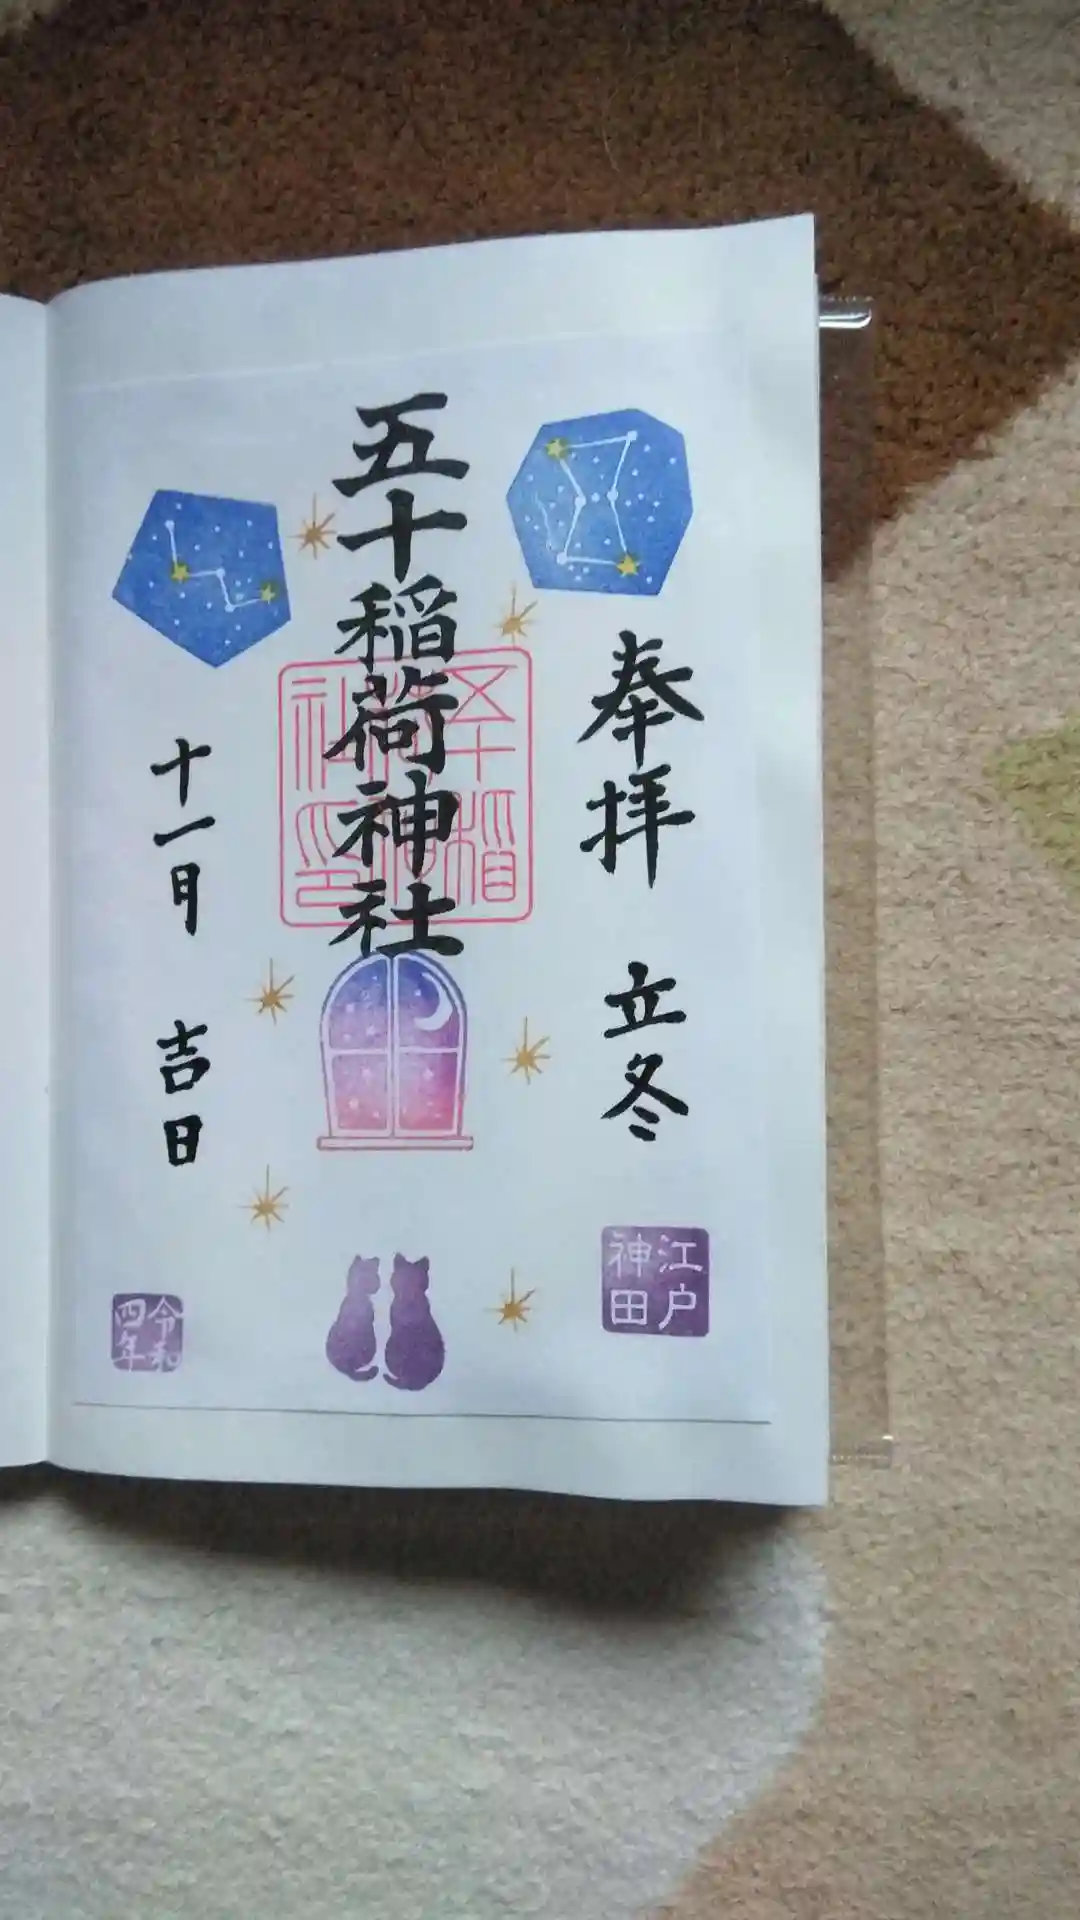 奉拝 立冬
江戸
神田
五十稲荷神社
五十稲
荷神
社印
十一月 吉日
令和
四年